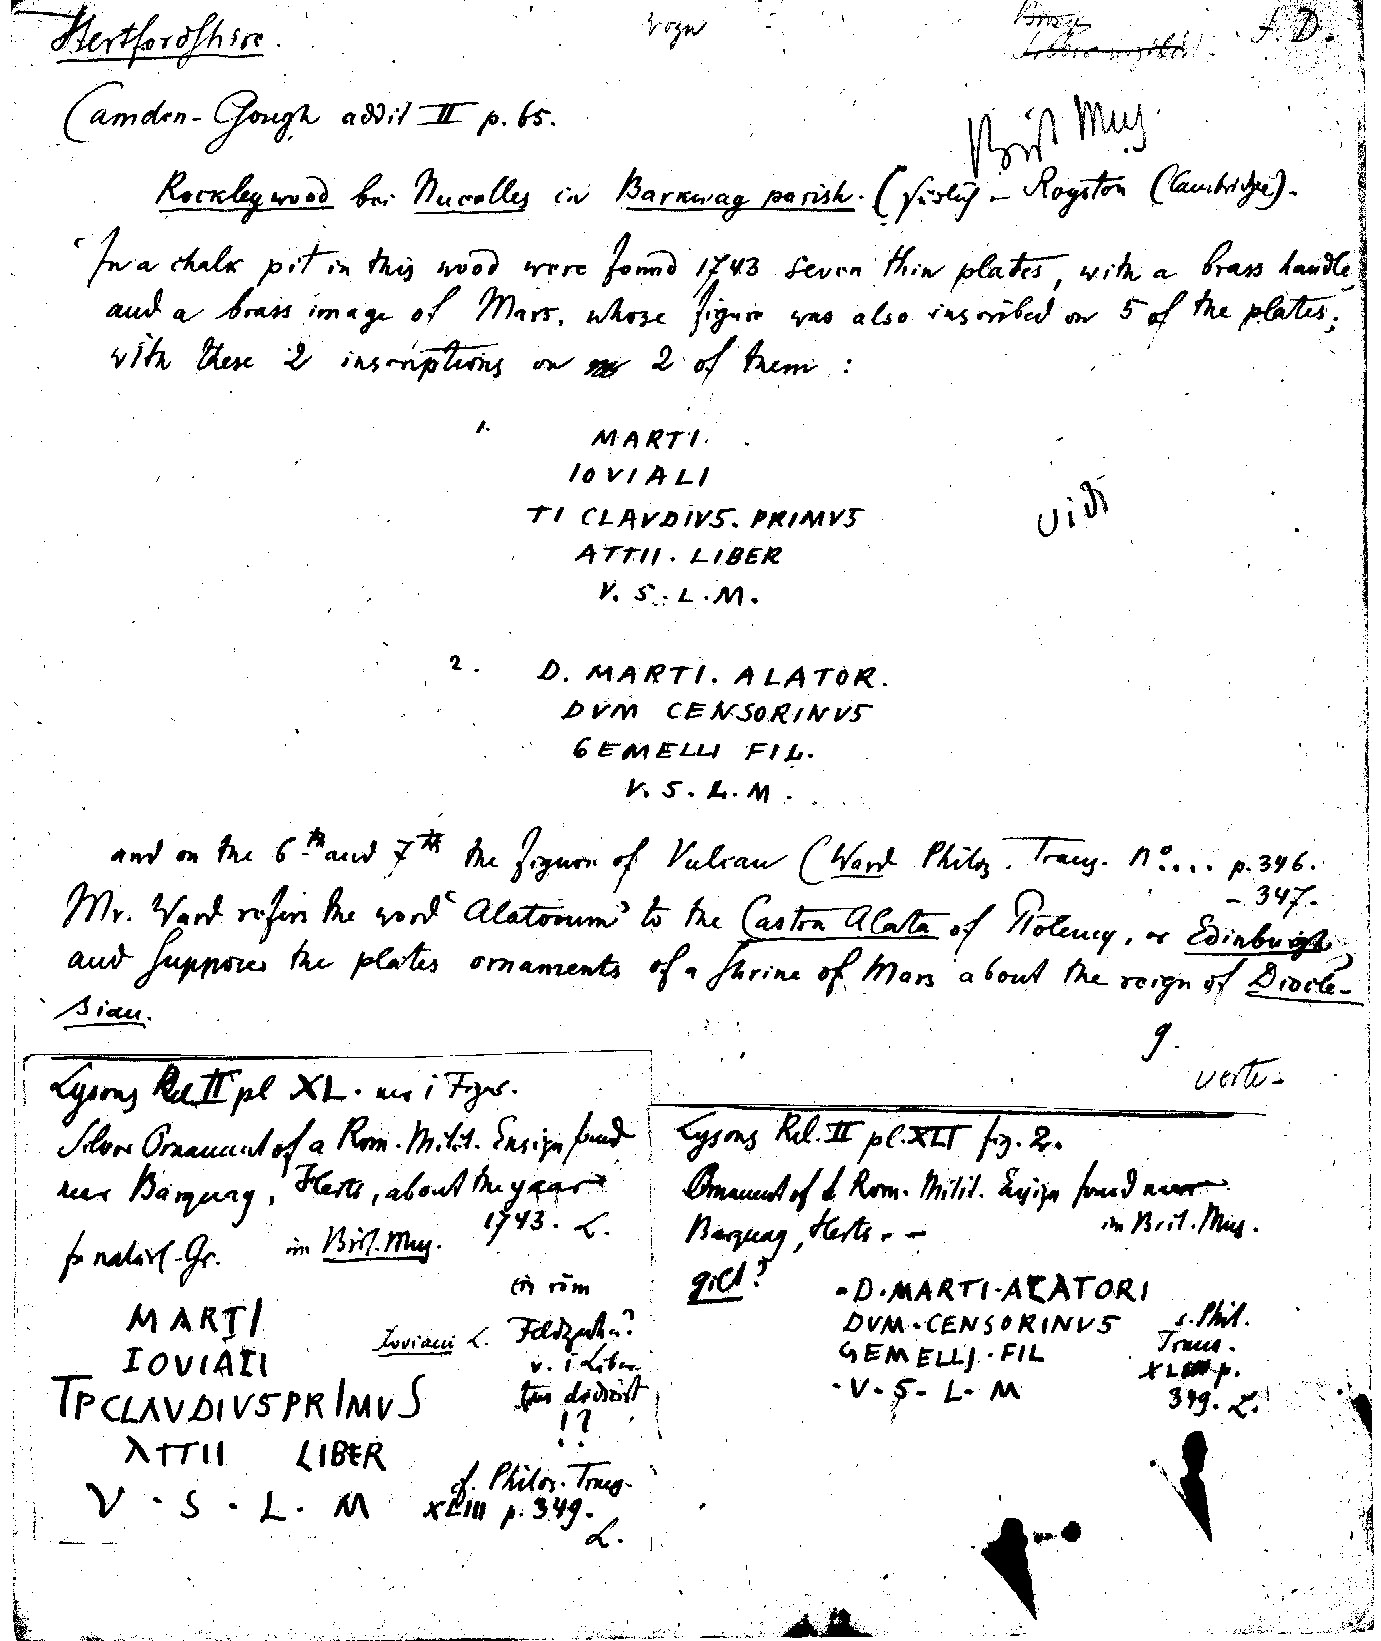 Hertfordshire.
F. D.
Camden-Gough addit II p. 65.
Brit Mus.
Rockleywood bei Nucelles in Barkwag parish. (südlich - Royston (Cambridge).
In a chalk pit in this wood were found 1743 seven thin plates, with a brass handle,
and a brass image of Mars, whose figure was also inscribed on 5 of the plates;
with these 2 inscriptions on 2 of them :
1.
MARTI.
IOVIALI
TI CLAVDIVS. PRIMVS
ATTII. LIBER
V. S. L. M.
vidi
2.
D. MARTI. ALATOR.
DVM CENSORINVS
GEMELLI FIL.
V. S. L. M.
and on the 6th and 7th the figure of Vulcan (Ward Philos. Trans. no.... p. 346.
- 347.
Mr. Ward refers the word "Alatorum" to the Castra Alata of Ptolemy, or Edinburgh,
and supposes the plates ornaments of a shrine of Mars about the reign of Diocle-
sian.
g.
verte.
Lysons Rel II pl XL. Figur.
Silver Ornament of a Rom. Milit. Ensign found
near Barquay, Herts, about the year
1743. L.
in Brit. Mus.
MARTI
IOVIAII
TPCLAVDIVSPRIMVS
ATTII LIBER
V . S . L . M
Ioviani L.
ein röm
v. i Liber
!?
cf. Philos. Trans.
XLIII p. 349.
L.
Lysons Rel. II pl. XLI fig. 2.
Ornament of a Rom. Milit. Ensign found near
Barquay, Herts. -
in Brit. Mus.
gilt?
D. MARTI. ALATORI
DVM. CENSORINVS
GEMELLI. FIL
V. S. L. M
s. Phil.
Trans.
XLIII p.
349. L.